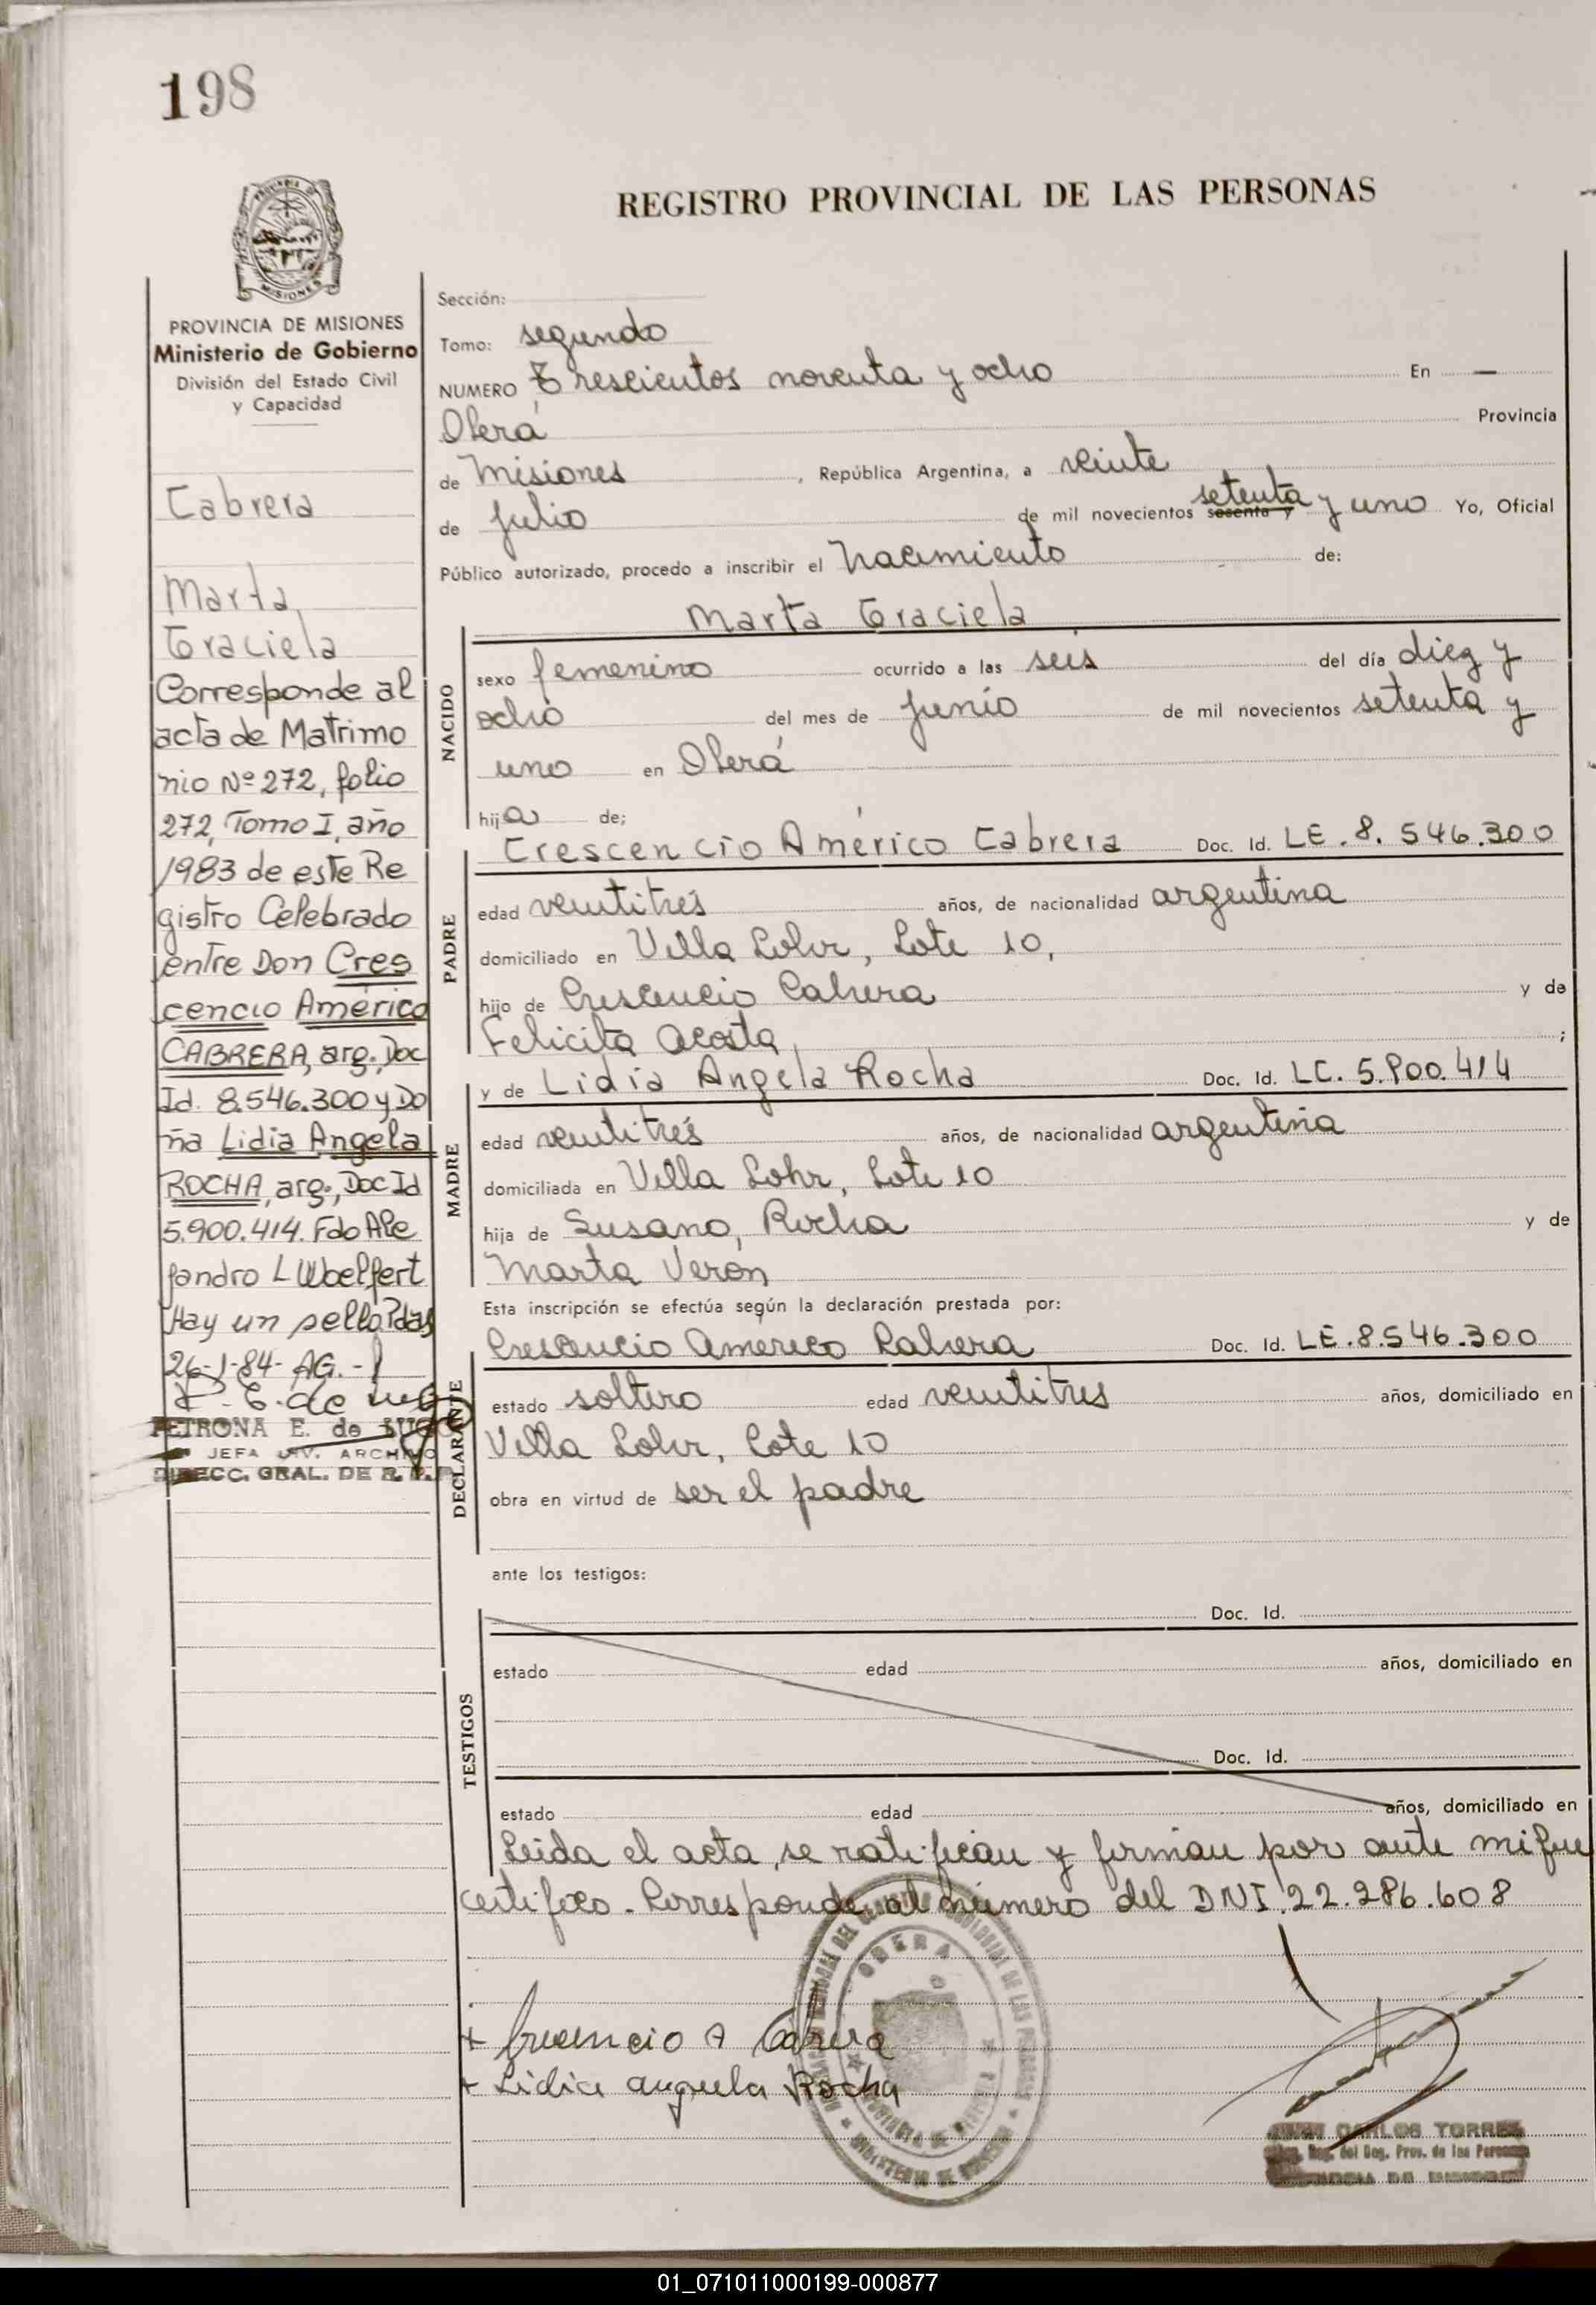 198
REGISTRO PROVINCIAL DE LAS PERSONAS
MISIONES
PROVINCIA DE MISIONES
Ministerio de Gobierno
División del Estado Civil
y Capacidad
Cabrera
Marta
Graciela
Corresponde al
acta de Matrimo
nio Nº 272, folio
272, Tomo I, año
1983 de este Re
gistro Celebrado
entre Don Cres
cencio Américo
CABRERA, arg., Doc
Id. 8.546.300 y Do
ña Lidia Angela
ROCHA, arg., Doc Id
5.900.414. Fdo Ale
jandro L Woelfert
Hay un sello. Pdas
26-1-84- AG.-
PETRONA E. de LUGO
JEFA DIV. ARCHIVO
DIRECC. GRAL. DE R. P.
Sección:
Tomo: segundo
NUMERO Trescientos noventa y ocho En —
Oberá Provincia
de Misiones, República Argentina, a veinte
de julio de mil novecientos sesenta y setenta y uno Yo, Oficial
Público autorizado, procedo a inscribir el Nacimiento de:
Marta Graciela
NACIDO
sexo femenino ocurrido a las seis del día diez y
ocho del mes de junio de mil novecientos setenta y
uno en Oberá
hija de;
Crescencio Américo Cabrera Doc. Id. LE. 8. 546.300
PADRE
edad veintitrés años, de nacionalidad argentina
domiciliado en Villa Lohr, Lote 10,
hijo de Crescencio Cabrera y de
Felicita Acosta ;
y de Lidia Angela Rocha Doc. Id. LC. 5.900.414
MADRE
edad veintitrés años, de nacionalidad argentina
domiciliada en Villa Lohr, Lote 10
hija de Susano, Rocha y de
Marta Verón
Esta inscripción se efectúa según la declaración prestada por:
Crescencio Americo Cabrera Doc. Id. LE.8.546.300
DECLARANTE
estado soltero edad veintitres años, domiciliado en
Villa Lohr, Lote 10
obra en virtud de ser el padre
ante los testigos:
TESTIGOS
Doc. Id.
estado edad años, domiciliado en
Doc. Id.
estado edad años, domiciliado en
Leida el acta, se ratifican y firman por ante mi que
certifico. Corresponde al número del DNI. 22.286.608
OBERA
+ Crecencio A Cabrera
+ Lidia angela Rocha
JUAN CARLOS TORRES
Reg. del Reg. Prov. de las Personas
01_071011000199-000877